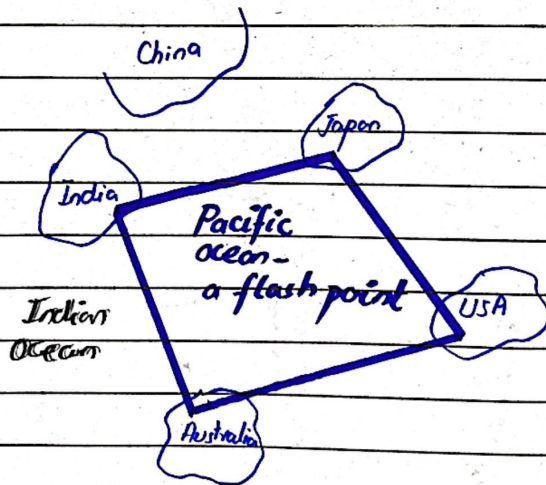 China
Japan
India
Pacific
ocean-
a flash point
USA
Indian
ocean
Australia